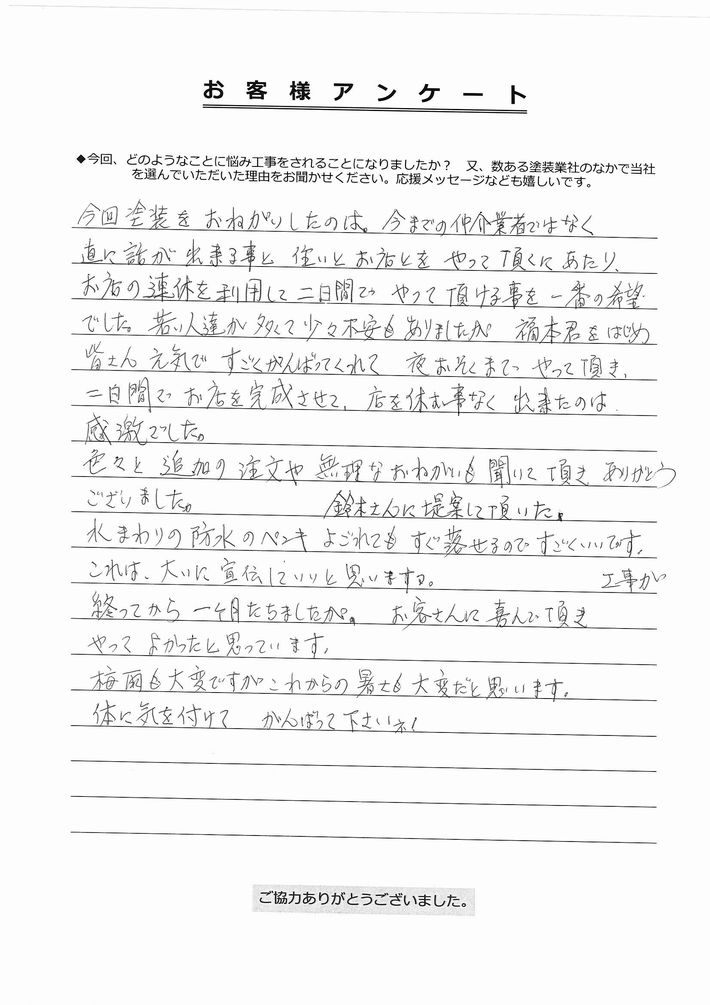 お客様アンケート
◆今回、どのようなことに悩み工事をされることになりましたか？　又、数ある塗装業社のなかで当社
を選んでいただいた理由をお聞かせください。応援メッセージなども嬉しいです。
今回塗装をおねがいしたのは。今までの仲介業者ではなく
直に話が出来る事と住いとお店とをやって頂くにあたり、
お店の連休を利用して二日間でやって頂ける事を一番の希望
でした。若い人達が多くて少々不安もありましたが　福本君をはじめ
皆さん元気ですごくがんばってくれて　夜おそくまでやって頂き、
二日間でお店を完成させて、店を休む事なく出来たのは
感激でした。
色々と追加の注文や無理なおねがいも聞いて頂きありがとう
ございました。　鈴木さんに提案して頂いた。
水まわりの防水のペンキよごれてもすぐ落せるのですごくいいです。
これは、大いに宣伝していいと思いますョ。　工事が
終ってから一ヶ月たちましたが。お客さんに喜んで頂き
やってよかったと思っています。
梅雨も大変ですがこれからの暑さも大変だと思います。
体に気を付けて　がんばって下さいネ！
ご協力ありがとうございました。